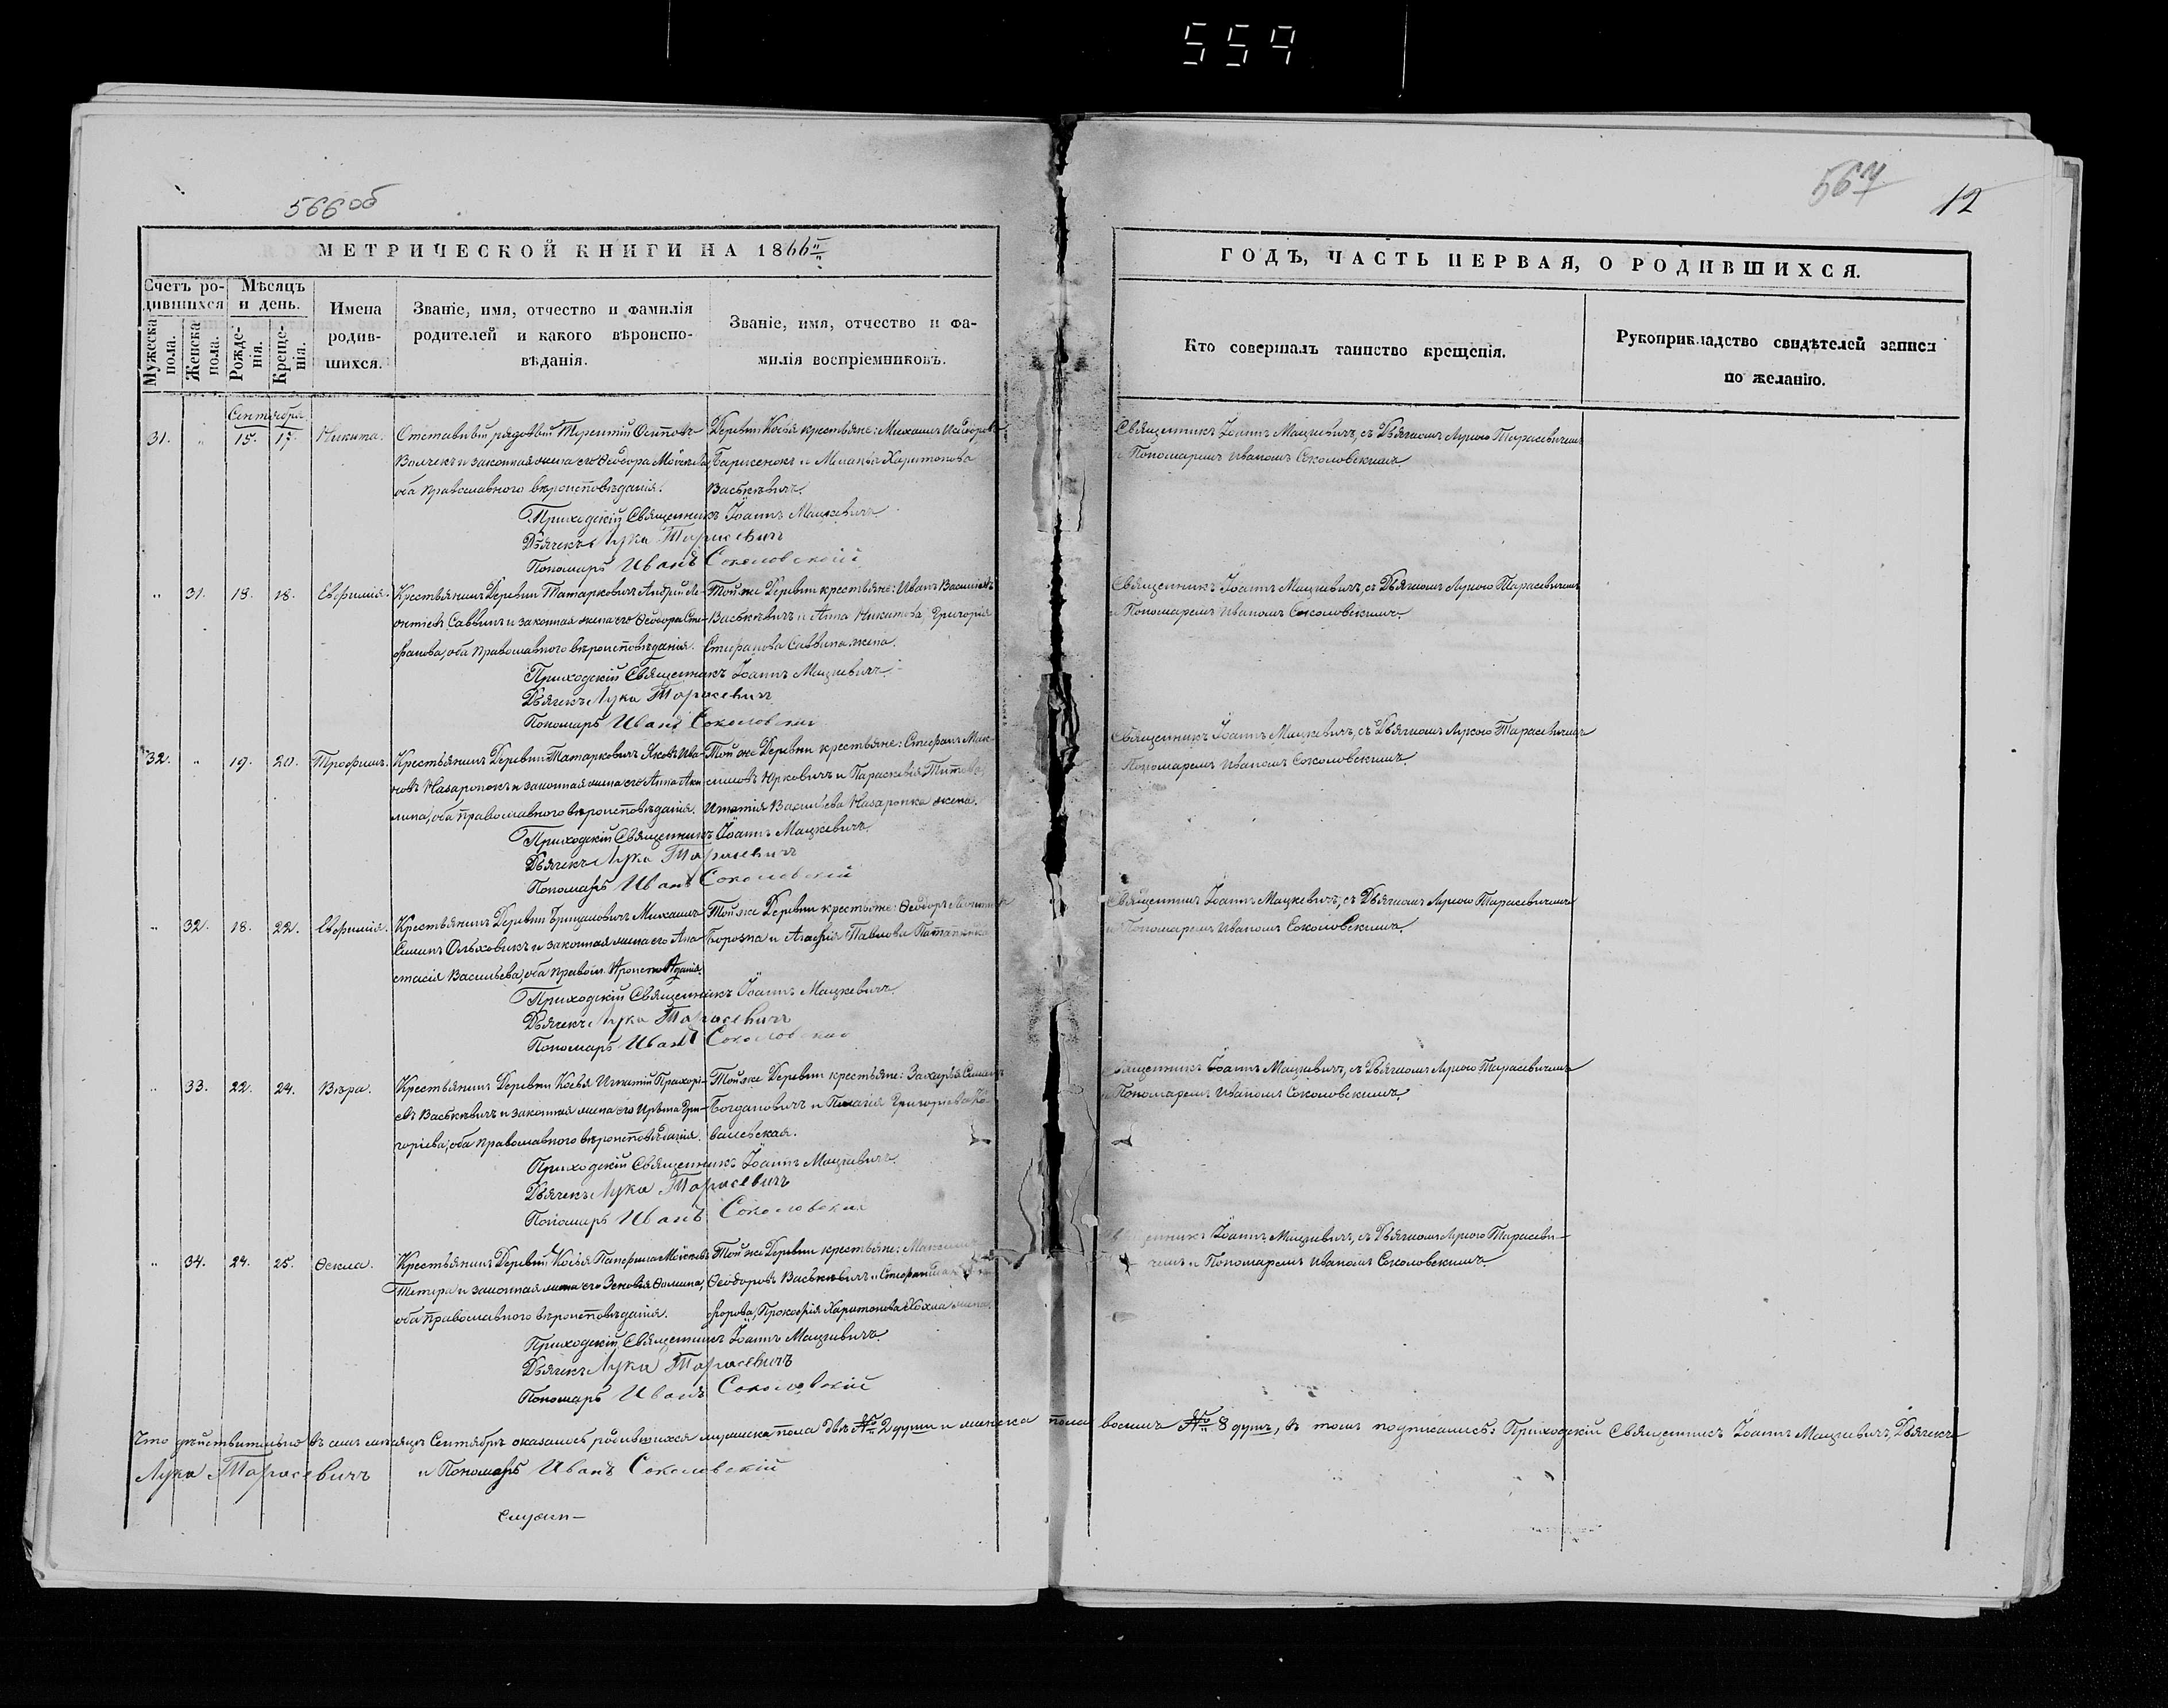 559
566об
МЕТРИЧЕСКОЙ КНИГИ НА 1866
Счетъ родившихся
Мѣсяцъ и день.
Мужеска пола.
Женска пола.
Рожденія.
Крещенія.
Имена родившихся.
Званіе, имя, отчество и фамилія
родителей и какого вѣроиспо-
вѣданія.
Званіе, имя, отчество и фа-
милія воспріемниковъ.
Сентября
31. " 15. 17. Никита.
Отставный рядовый Терентій Осиповъ
Волчекъ и законная жена его Ѳеодора
оба православного вѣроисповѣданія.
Деревни Косья крестьяне: Михаилъ Исидоровъ
и Меланія Харитонова
Васькевичъ.
Приходскій Священникъ Іоаннъ Мацкевичъ.
Дьячекъ Лука Тарасевичъ
Пономарь Иванъ Соколовскій
" 31. 18. 18. Евфимія.
Крестьянинъ Деревни Татарковичъ Андрей Ле-
онтіевъ Саввинъ и законная жена его Ѳеодора Сте-
фанова, оба православного вѣроисповѣданія.
Той же Деревни крестьяне: Иванъ Васильевъ
Васькевичъ и Анна Никитова, Григорія
Стефанова Саввина жена.
Приходскій Священникъ Іоаннъ Мацкевичъ.
Дьячекъ Лука Тарасевичъ
Пономарь Иванъ Соколовскій
32. " 19. 20. Трофимъ.
Крестьянинъ Деревни Татарковичъ Яковъ Ива-
новъ Назаронокъ и законная жена его Анна Аки-
мина, оба православного вѣроисповѣданія.
Той же Деревни крестьяне: Стефанъ Мак-
симовъ Юрковичъ и Параскевія Титова,
Игнатія Васильева Назаронка жена.
Приходскій Священникъ Іоаннъ Мацкевичъ.
Дьячекъ Лука Тарасевичъ
Пономарь Иванъ Соколовскій
" 32. 18. 22. Евфимія.
Крестьянинъ Деревни Грицковичъ Михаилъ
Симинъ Ольховикъ и законная жена его Ана-
стасія Васильева, оба правосл. вѣроисповѣданія.
Той же Деревни крестьяне: Ѳеодоръ
Борозна и Агафія Павлова
Приходскій Священникъ Іоаннъ Мацкевичъ.
Дьячекъ Лука Тарасевичъ
Пономарь Иванъ Соколовскій
" 33. 22. 24. Вѣра.
Крестьянинъ Деревни Косья Игнатій Прохорі-
евъ Васькевичъ и законная жена его Ирина Гри-
горіева, оба православного вѣроисповѣданія.
Той же Деревни крестьяне: Захарія Симинъ
Богдановичъ и Пелагія Григоріева Ко-
валевская.
Приходскій Священникъ Іоаннъ Мацкевичъ.
Дьячекъ Лука Тарасевичъ
Пономарь Иванъ Соколовскій
" 34. 24. 25. Ѳекла.
Крестьянинъ Деревни Косья Панфилъ Моисеевъ
Тетера и законная жена его Зеновія Ѳомина,
оба православного вѣроисповѣданія.
Той же Деревни крестьяне:
Ѳеодоровъ Васькевичъ и
Прокофія Харитонова жена.
Приходскій Священникъ Іоаннъ Мацкевичъ.
Дьячекъ Лука Тарасевичъ
Пономарь Иванъ Соколовскій
Что дѣйствительно въ семъ мѣсяцѣ Сентябрѣ оказалось родившихся мужеска пола двѣ № 2 души и женска пола
Лука Тарасевичъ и Пономарь Иванъ Соколовскій
567
12
ГОДЪ, ЧАСТЬ ПЕРВАЯ, О РОДИВШИХСЯ.
Кто совершалъ таинство крещенія.
Рукоприкладство свидѣтелей записи
по желанію.
Священникъ Іоаннъ Мацкевичъ, съ Дьячкомъ Лукою Тарасевичемъ
и Пономаремъ Иваномъ Соколовскимъ.
Священникъ Іоаннъ Мацкевичъ, съ Дьячкомъ Лукою Тарасевичемъ
и Пономаремъ Иваномъ Соколовскимъ.
Священникъ Іоаннъ Мацкевичъ, съ Дьячкомъ Лукою Тарасевичемъ
Пономаремъ Иваномъ Соколовскимъ.
Священникъ Іоаннъ Мацкевичъ, съ Дьячкомъ Лукою Тарасевичемъ
и Пономаремъ Иваномъ Соколовскимъ.
Священникъ Іоаннъ Мацкевичъ, съ Дьячкомъ Лукою Тарасевичемъ
и Пономаремъ Иваномъ Соколовскимъ.
Священникъ Іоаннъ Мацкевичъ, съ Дьячкомъ Лукою Тарасеви-
чемъ и Пономаремъ Иваномъ Соколовскимъ.
восемь № 8 душъ, въ томъ подписались: Приходскій Священникъ Іоаннъ Мацкевичъ, Дьячекъ